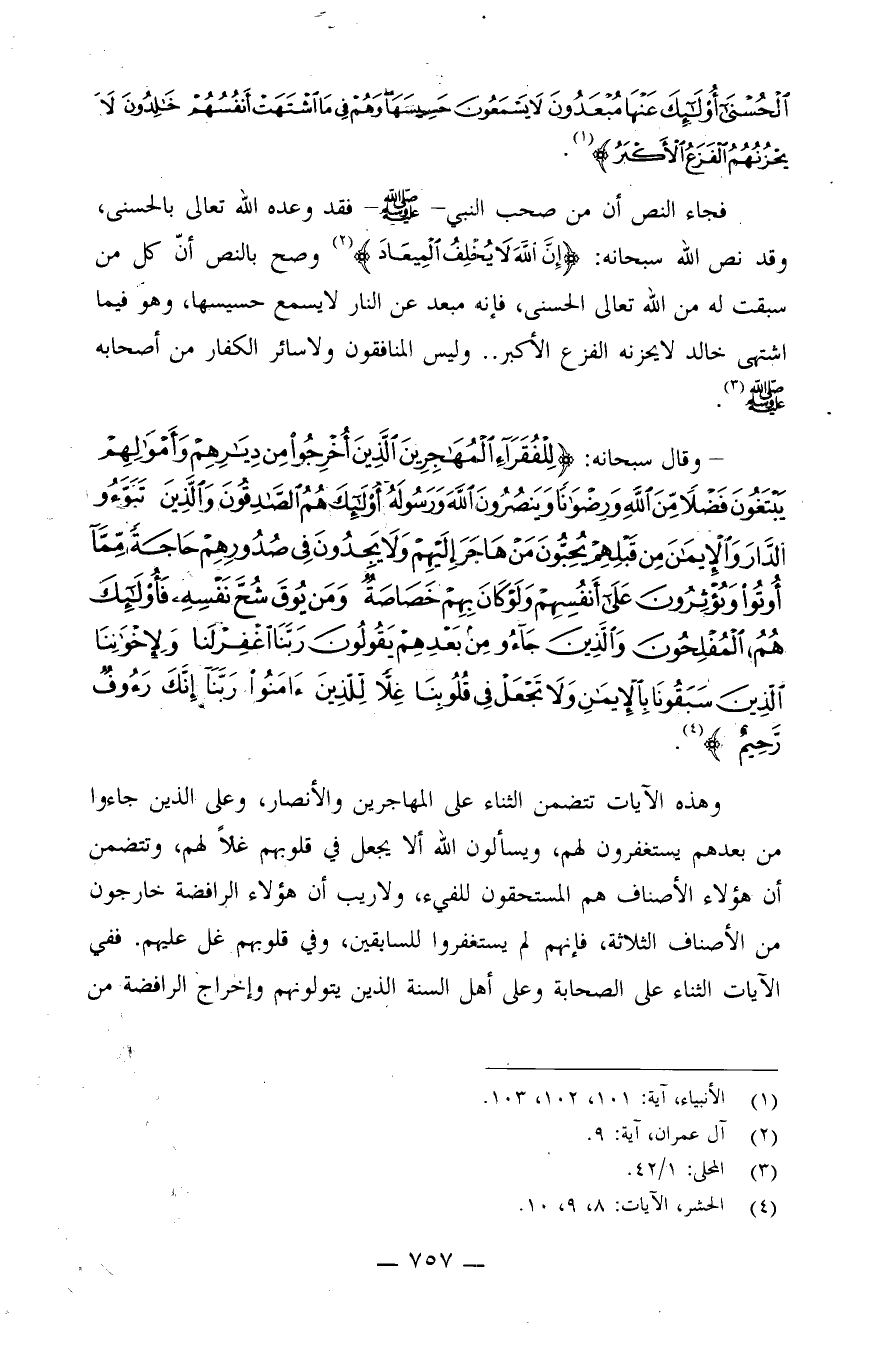 ٱلْحُسْنَىٰٓ أُوْلَٰٓئِكَ عَنْهَا مُبْعَدُونَ لَا يَسْمَعُونَ حَسِيسَهَا ۖ وَهُمْ فِى مَا ٱشْتَهَتْ أَنفُسُهُمْ خَٰلِدُونَ لَا
يَحْزُنُهُمُ ٱلْفَزَعُ ٱلْأَكْبَرُ ﴾(١).
فجاء النص أن من صحب النبي- ﷺ- فقد وعده الله تعالى بالحسنى،
وقد نص الله سبحانه: ﴿ إِنَّ ٱللَّهَ لَا يُخْلِفُ ٱلْمِيعَادَ ﴾(٢) وصح بالنص أنّ كل من
سبقت له من الله تعالى الحسنى، فإنه مبعد عن النار لايسمع حسيسها، وهو فيما
اشتهى خالد لايحزنه الفزع الأكبر.. وليس المنافقون ولاسائر الكفار من أصحابه
ﷺ(٣).
– وقال سبحانه: ﴿ لِلْفُقَرَآءِ ٱلْمُهَٰجِرِينَ ٱلَّذِينَ أُخْرِجُوا۟ مِن دِيَٰرِهِمْ وَأَمْوَٰلِهِمْ
يَبْتَغُونَ فَضْلًا مِّنَ ٱللَّهِ وَرِضْوَٰنًا وَيَنصُرُونَ ٱللَّهَ وَرَسُولَهُۥٓ أُوْلَٰٓئِكَ هُمُ ٱلصَّٰدِقُونَ وَٱلَّذِينَ تَبَوَّءُو
ٱلدَّارَ وَٱلْإِيمَٰنَ مِن قَبْلِهِمْ يُحِبُّونَ مَنْ هَاجَرَ إِلَيْهِمْ وَلَا يَجِدُونَ فِى صُدُورِهِمْ حَاجَةً مِّمَّآ
أُوتُوا۟ وَيُؤْثِرُونَ عَلَىٰٓ أَنفُسِهِمْ وَلَوْ كَانَ بِهِمْ خَصَاصَةٌ ۚ وَمَن يُوقَ شُحَّ نَفْسِهِۦ فَأُوْلَٰٓئِكَ
هُمُ ٱلْمُفْلِحُونَ وَٱلَّذِينَ جَآءُو مِنۢ بَعْدِهِمْ يَقُولُونَ رَبَّنَا ٱغْفِرْ لَنَا وَلِإِخْوَٰنِنَا
ٱلَّذِينَ سَبَقُونَا بِٱلْإِيمَٰنِ وَلَا تَجْعَلْ فِى قُلُوبِنَا غِلًّا لِّلَّذِينَ ءَامَنُوا۟ رَبَّنَآ إِنَّكَ رَءُوفٌ
رَّحِيمٌ ﴾(٤).
وهذه الآيات تتضمن الثناء على المهاجرين والأنصار، وعلى الذين جاءوا
من بعدهم يستغفرون لهم، ويسألون الله ألا يجعل في قلوبهم غلاً لهم، وتتضمن
أن هؤلاء الأصناف هم المستحقون للفيء، ولاريب أن هؤلاء الرافضة خارجون
من الأصناف الثلاثة، فإنهم لم يستغفروا للسابقين، وفي قلوبهم غل عليهم. ففي
الآيات الثناء على الصحابة وعلى أهل السنة الذين يتولونهم وإخراج الرافضة من
(١) الأنبياء، آية: ١٠١، ١٠٢، ١٠٣.
(٢) آل عمران، آية: ٩.
(٣) المحلى: ٤٢/١.
(٤) الحشر، الآيات: ٨، ٩، ١٠.
— ٧٥٧ —